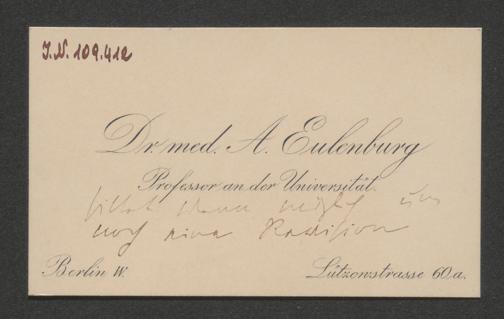 J.N. 109.412
Dr. med. A. Eulenburg
Professor an der Universität.
bittet um
noch eine Revision
Berlin W.
Lützowstrasse 60a.